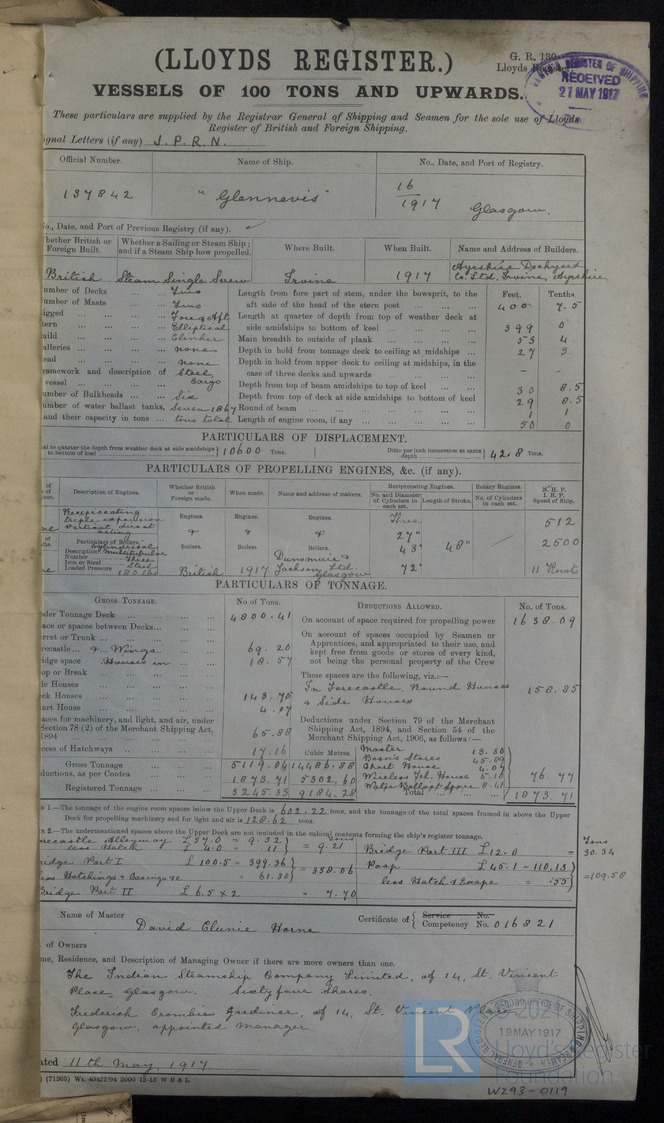 (LLOYDS REGISTER.)
G. R. 130.
Lloyds Register
REGISTER OF SHIPPING
RECEIVED
21 MAY 1917
VESSELS OF 100 TONS AND UPWARDS.
These particulars are supplied by the Registrar General of Shipping and Seamen for the sole use of Lloyds
Register of British and Foreign Shipping.
ignal Letters (if any) J. P. R. N.
Official Number. Name of Ship. No., Date, and Port of Registry.
137842 "Glennevis" 16/1917 Glasgow.
o., Date, and Port of Previous Registry (if any).
hether British or Foreign Built. Whether a Sailing or Steam Ship; and if a Steam Ship how propelled. Where Built. When Built. Name and Address of Builders.
British Steam Single Screw Irvine 1917 Ayrshire Dockyard Co. Ltd. Irvine, Ayrshire
umber of Decks Two
umber of Masts Two
igged Fore & Aft
tern Elliptical
uild Clincher
alleries none
ead none
ramework and description of vessel Steel Cargo
umber of Bulkheads Six
umber of water ballast tanks, and their capacity in tons Seven 1867 tons total
Feet. Tenths.
Length from fore part of stem, under the bowsprit, to the aft side of the head of the stern post 400 7.5
Length at quarter of depth from top of weather deck at side amidships to bottom of keel 399 0
Main breadth to outside of plank 53 4
Depth in hold from tonnage deck to ceiling at midships 27 3
Depth in hold from upper deck to ceiling at midships, in the case of three decks and upwards - -
Depth from top of beam amidships to top of keel 30 8.5
Depth from top of deck at side amidships to bottom of keel 29 8.5
Round of beam 1 1
Length of engine room, if any 50 0
PARTICULARS OF DISPLACEMENT.
al to quarter the depth from weather deck at side amidships to bottom of keel 10600 Tons. Ditto per inch immersion at same depth 42.8 Tons.
PARTICULARS OF PROPELLING ENGINES, &c. (if any).
Description of Engines. Whether British or Foreign made. When made. Name and address of makers. Reciprocating Engines. Rotary Engines. N. H. P.
No. and Diameter of Cylinders in each set. Length of Stroke. No. of Cylinders in each set. I. H. P. Speed of Ship.
Reciprocating triple expansion vertical direct acting
Engines. Engines. Engines. Three 512
& & & 27" 2500
Particulars of Boilers. Boilers. Boilers Boilers. 43" 48"
Description Cylindrical Multitubular
Number Three
Iron or Steel Steel
Loaded Pressure 180 lbs British 1917 Dunsmuir & Jackson, Ltd. Glasgow 72" 11 Knots
PARTICULARS OF TONNAGE.
GROSS TONNAGE. No. of Tons. DEDUCTIONS ALLOWED. No. of Tons.
der Tonnage Deck 4800.41
ace or spaces between Decks
rret or Trunk
recastle & Wings 69.20
idge space Houses in 18.57
op or Break
de Houses
ck Houses 143.75
art House 4.07
aces for machinery, and light, and air, under Section 78 (2) of the Merchant Shipping Act, 1894 65.88
cess of Hatchways 17.16 Cubic Metres
Gross Tonnage 5119.04 14486.88
ductions, as per Contra 1873.71 5302.60
Registered Tonnage 3245.33 9184.28
On account of space required for propelling power 1638.09
On account of spaces occupied by Seamen or Apprentices, and appropriated to their use, and kept free from goods or stores of every kind, not being the personal property of the Crew
These spaces are the following, viz.:—
In Forecastle, Round Houses & Side Houses 158.85
Deductions under Section 79 of the Merchant Shipping Act, 1894, and Section 54 of the Merchant Shipping Act, 1906, as follows:—
Master 13.30
Bosn's Stores 45.09
Chart House 4.07
Wireless Tel. House 5.10
Water Ballast Space 8.41 76.77
Total 1873.71
E 1.—The tonnage of the engine room spaces below the Upper Deck is 602.22 tons, and the tonnage of the total spaces framed in above the Upper Deck for propelling machinery and for light and air is 128.62 tons.
E 2.—The undermentioned spaces above the Upper Deck are not included in the cubical contents forming the ship's register tonnage.
recastle Alleyway £37.0 = 9.32
less Hatch £4.0 = .11 = 9.21 Tons
ridge Part I £100.5 = 399.36
less Hatchings & Casing &c = 61.30 = 338.06
Bridge Part II £6.5 x 2 = 7.70
Bridge Part III £12.0 = 30.34 Tons
Poop £45.1 = 110.13
less Hatch & Escape = .55 = 109.58
Name of Master David Clunie Horne Certificate of Service No. Competency No. 016821
of Owners
me, Residence, and Description of Managing Owner if there are more owners than one.
The Indian Steamship Company Limited, of 14, St. Vincent
Place, Glasgow. Sixtyfour Shares.
Frederick Crombie Gardiner, of 14, St. Vincent Place
Glasgow, appointed Manager
ated 11th May, 1917
(71265) Wt. 40422/94 2000 12-15 W B & L
19 MAY 1917
LR
© 2021
Lloyd's Register
Foundation
W293-0119